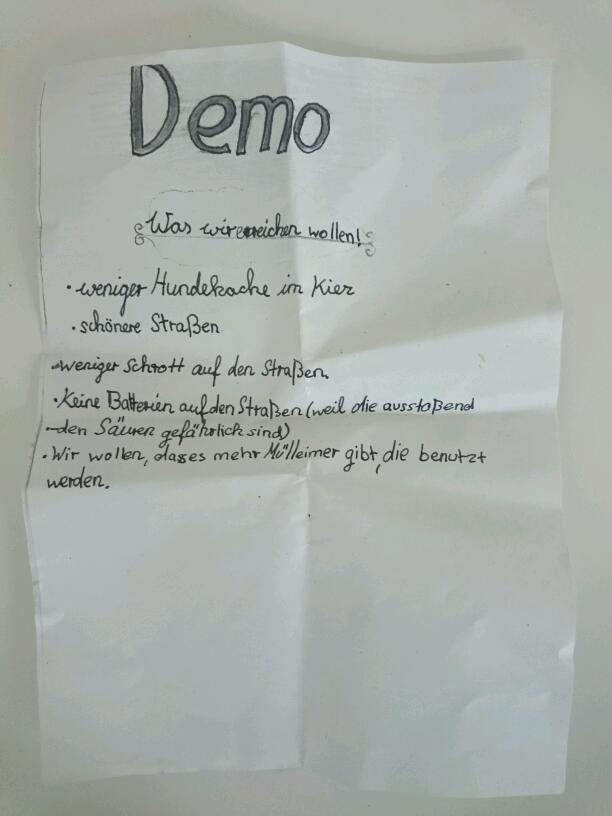 Demo
Was wir erreichen wollen!
• weniger Hundekacke im Kiez
• schönere Straßen
• weniger Schrott auf den Straßen.
• Keine Batterien auf den Straßen (weil die ausstoßend
-den Säuren gefährlich sind)
• Wir wollen, dass es mehr Mülleimer gibt, die benutzt
werden.